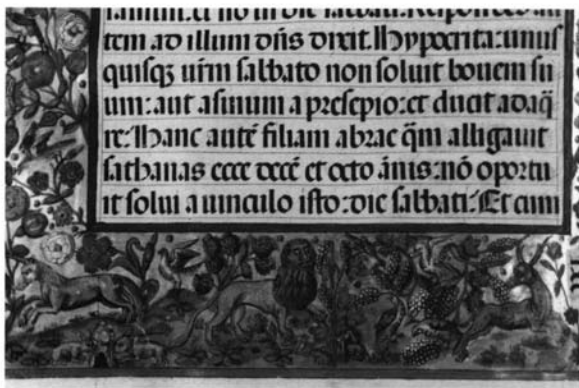 et nō in die sabbati. Respondens au
tem ad illum dn̄s dixit. Hypocrita: unus
quisq; ur̄m sabbato non soluit bouem su
um: aut asinum a presepio: et ducit adaq̄
re: Hanc autē filiam abrae q̄m alligauit
sathanas ecce decē et octo ānis: nō oportu
it solui a uinculo isto: die sabbati: Et cum